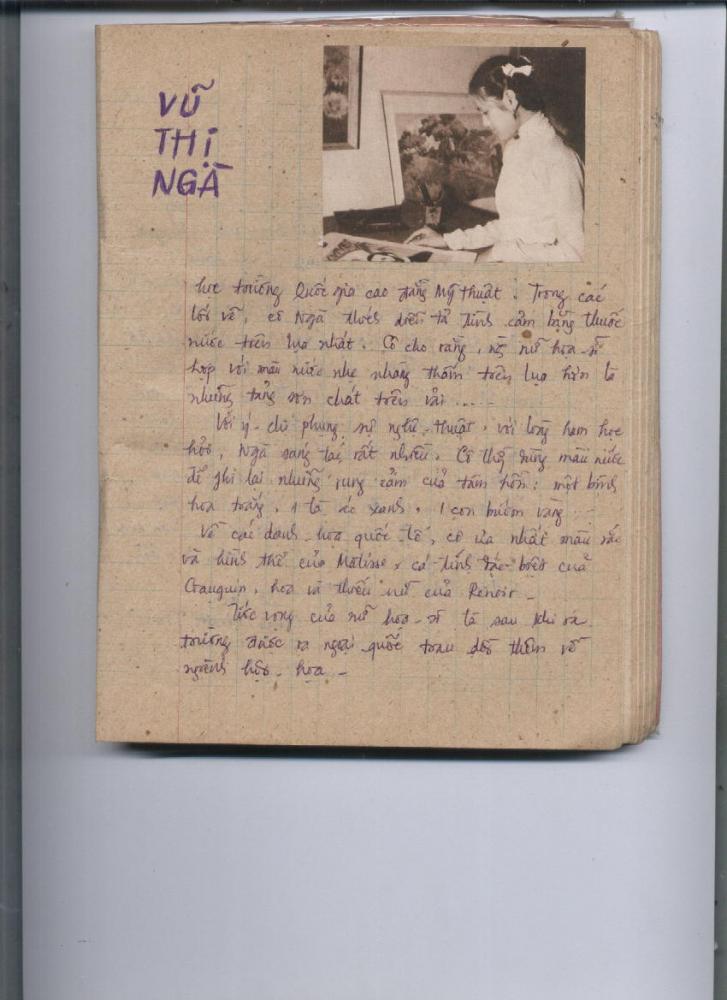 VŨ
THỊ
NGÀ
học trường Quốc gia cao đẳng Mỹ thuật. Trong các
lối vẽ, cô Ngà thích diễn tả tình cảm bằng thuốc
nước trên lụa nhất. Cô cho rằng, nữ họa-sĩ
hợp với màu nước nhẹ nhàng thấm trên lụa hơn là
những tảng sơn chát trên vải ....
Với ý-chí phụng sự nghệ-thuật, với lòng ham học
hỏi, Ngà sáng tác rất nhiều. Cô thg dùng màu nước
để ghi lại những rung cảm của tâm hồn: một bông
hoa trắng, 1 lá úc xanh, 1 con bướm vàng ...
Về các danh-họa quốc tế, cô ưa nhất màu sắc
và hình thể của Matisse, cá tính đặc-biệt của
Gauguin, hoa và thiếu nữ của Renoir -
Ước vọng của nữ họa-sĩ là sau khi ra
trường được ra ngoại quốc trau dồi thêm về
ngành hội-họa -